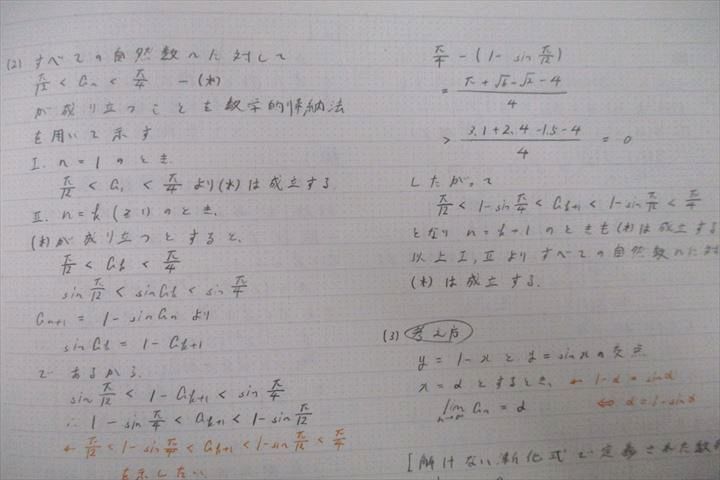 (2) すべての自然数nに対して
π/12 < an < π/4 —(*)
が成り立つことを数学的帰納法
を用いて示す
I. n = 1 のとき.
π/12 < a1 < π/4 より(*)は成立する.
II. n = k (≧1) のとき.
(*)が成り立つとすると.
π/12 < ak < π/4
sin π/12 < sin ak < sin π/4
an+1 = 1 - sin an より
sin ak = 1 - ak+1
であるから.
sin π/12 < 1 - ak+1 < sin π/4
∴ 1 - sin π/4 < ak+1 < 1 - sin π/12
← π/12 < 1 - sin π/4 < ak+1 < 1 - sin π/12 < π/4
を示したい
π/4 - (1 - sin π/12)
= (π + √6 - √2 - 4)/4
> (3.1 + 2.4 - 1.5 - 4)/4 = 0
したがって
π/12 < 1 - sin π/4 < ak+1 < 1 - sin π/12 < π/4
となり n = k+1 のときも(*)は成立する
以上 I, II より すべての自然数nに対
(*)は成立する.
(3) 考え方
y = 1 - x と y = sin x の交点
x = α とするとき, ← 1 - α = sin α
lim n→∞ an = α ⇔ α = 1 - sin α
[解けない漸化式で定義された数列